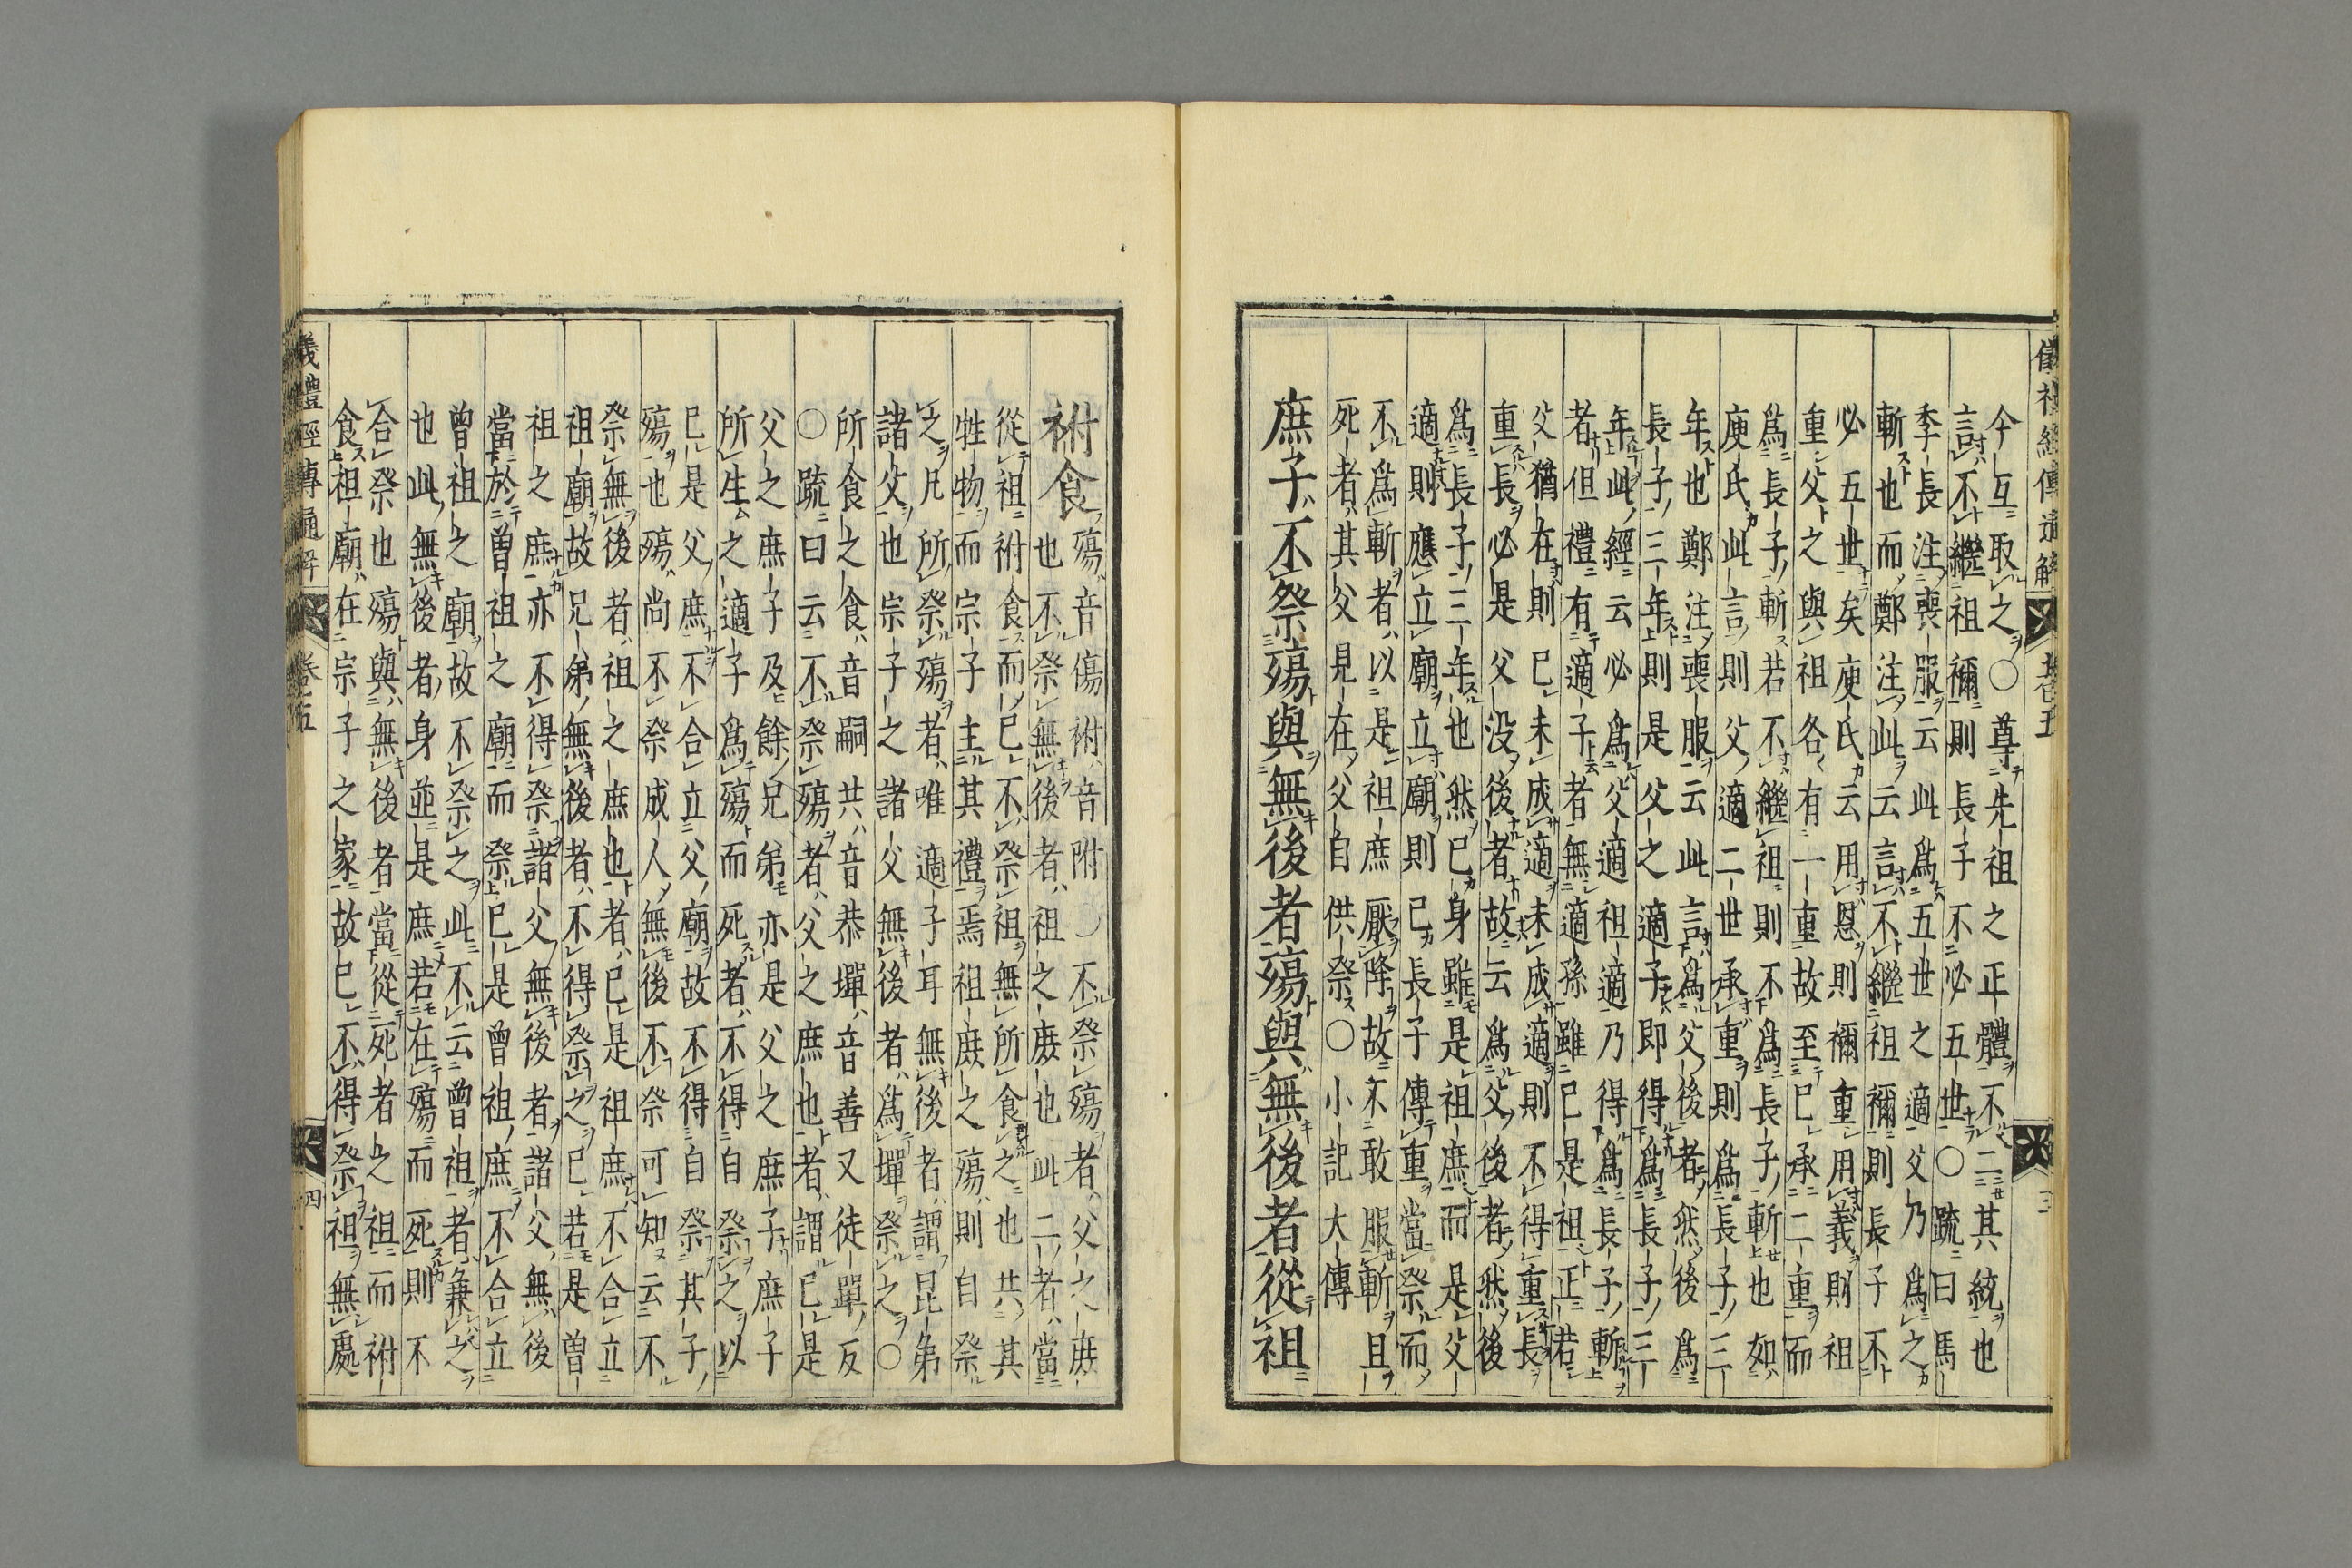 儀禮經傳通解 卷五 三
今互取之○尊先祖之正體不二其統也
言不繼祖禰則長子不必五世○疏曰馬
季長注喪服云此爲五世之適父乃爲之
斬也而鄭注此云言不繼祖禰則長子不
必五世矣庾氏云用恩則禰重用義則祖
重父之與祖各有一重故至已承二重而
爲長子斬若不繼祖則不爲長子斬也如
庾氏此言則父適二世承重則爲長子三
年也鄭注喪服云此言爲父後者然後爲
長子三年則是父之適子即得爲長子三
年此經云必爲父適祖適乃得爲長子斬
者但禮有適子者無適孫雖已是祖正若
父猶在則已未成適未成適則不得重長
重長必是父没後者故云爲父後者然後
爲長子三年也然已身雖是祖庶而是父
適則應立廟立廟則已長子傳重當祭而
不爲斬者以是祖庶厭降故不敢服斬且
死者其父見在父自供祭○小記大傳
庶子不祭殤與無後者殤與無後者從祖
祔食殤音傷祔音附○不祭殤者父之庶
也不祭無後者祖之庶也此二者當
從祖祔食而已不祭祖無所食之也共其
牲物而宗子主其禮焉祖庶之殤則自祭
之凡所祭殤者唯適子耳無後者謂昆弟
諸父也宗子之諸父無後者爲墠祭之○
所食之食音嗣共音恭墠音善又徒單反
○疏曰云不祭殤者父之庶也者謂已是
父之庶子及餘兄弟亦是父之庶子庶子
所生之適子爲殤而死者不得自祭之以
已是父庶不合立父廟故不得自祭其子
殤也殤尚不祭成人無後不祭可知云不
祭無後者祖之庶也者已是祖庶不合立
祖廟故兄弟無後者不得祭之已若是曾
祖之庶亦不得祭諸父無後者諸父無後
當於曾祖之廟而祭已是曾祖庶不合立
曾祖之廟故不祭之此不云曾祖者兼之
也此無後者身並是庶若在殤而死則不
合祭也殤與無後者當從死者之祖而祔
食祖廟在宗子之家故已不得祭祖無處
儀禮經傳通解 卷五 四